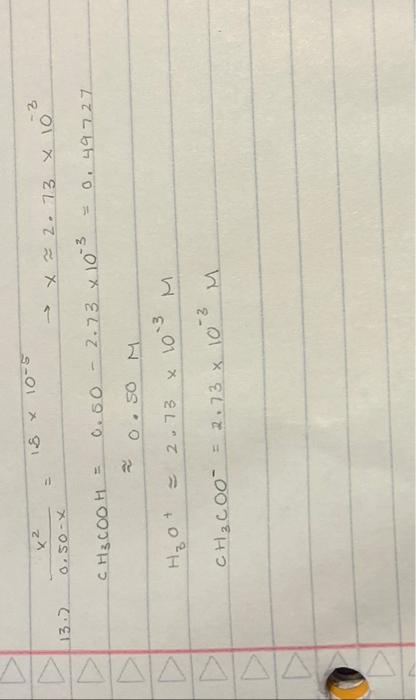 13.) x² / 0.50-x = 18 x 10⁻⁵ → x ≈ 2.73 x 10⁻³
CH₃COOH = 0.50 - 2.73 x 10⁻³ = 0.49727
≈ 0.50 M
H₃O⁺ ≈ 2.73 x 10⁻³ M
CH₃COO⁻ = 2.73 x 10⁻³ M